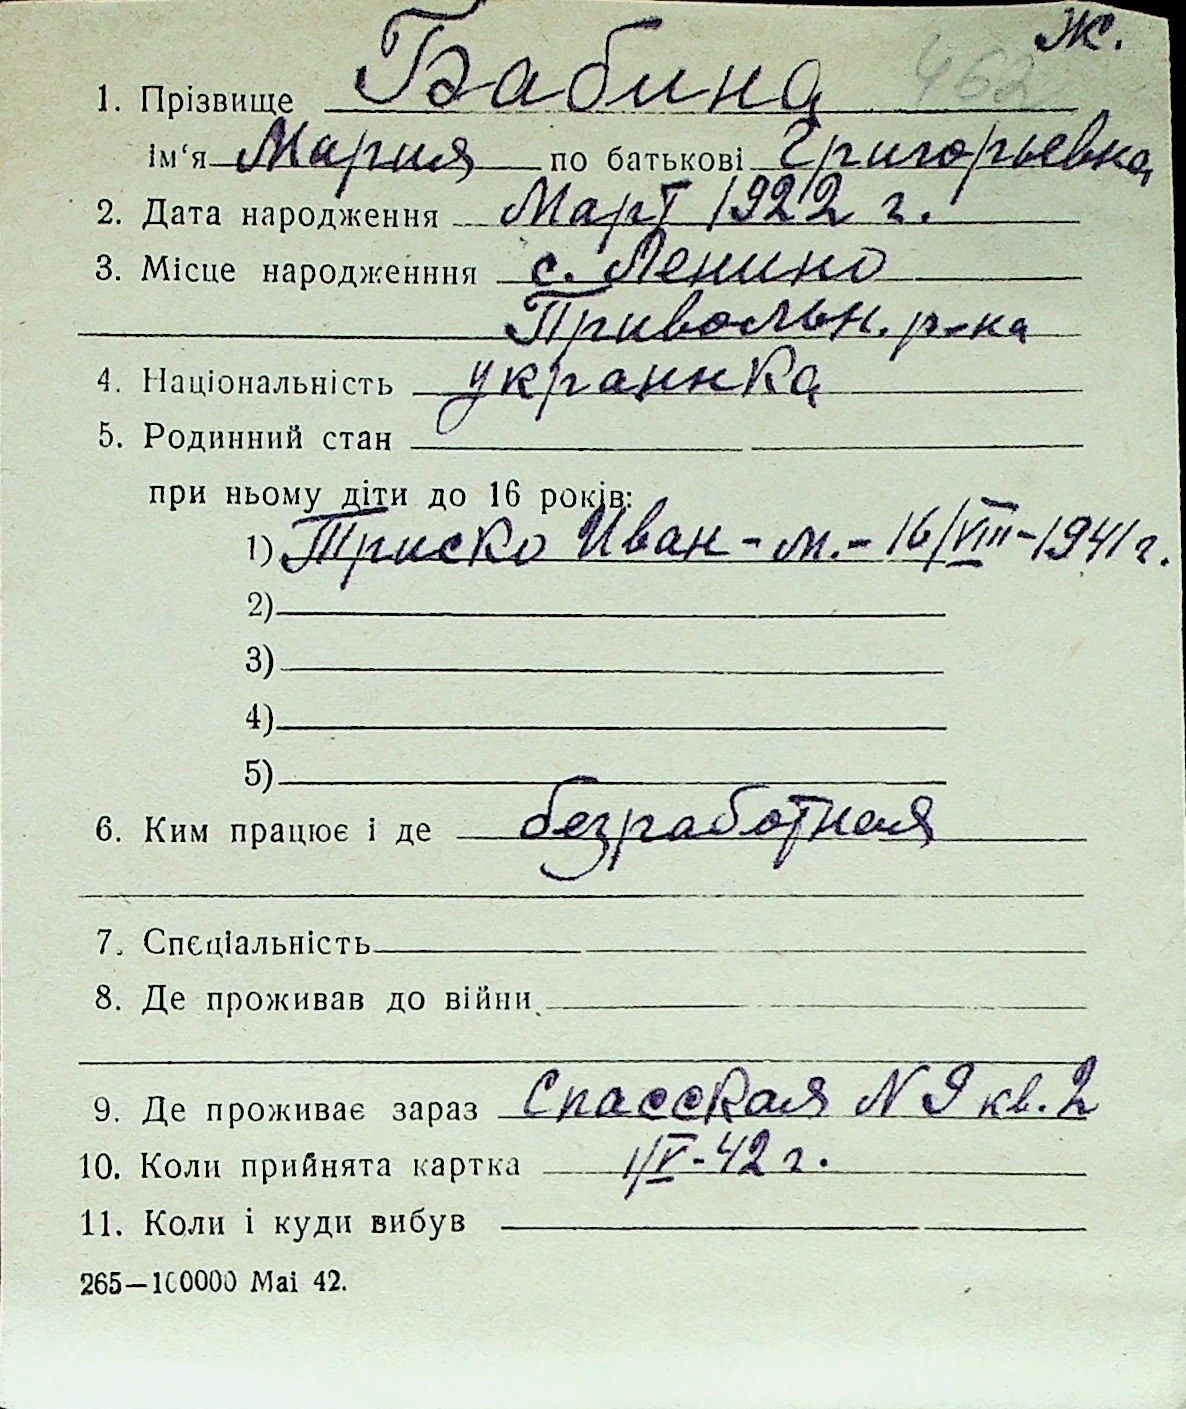 Ж.
462
1. Прізвище Бабина
ім'я Мария по батькові Григорьевна
2. Дата народження Март 1922 г.
3. Місце народженння с. Ленино
Привольн. р-на
4. Національність украинка
5. Родинний стан
при ньому діти до 16 років:
1) Триско Иван - м. - 16/VIII - 1941 г.
2)
3)
4)
5)
6. Ким працює і де безработная
7. Спєціальність
8. Де проживав до війни
9. Де проживає зараз Спасская N 9 кв. 2
10. Коли прийнята картка 1/V - 42 г.
11. Коли і куди вибув
265—100000 Маі 42.